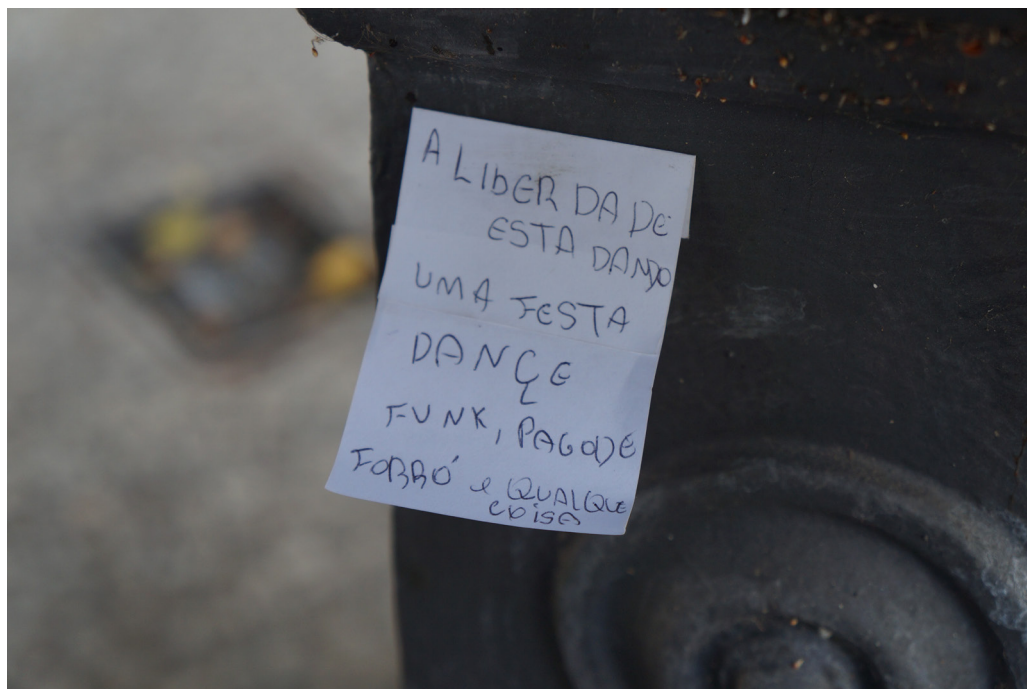 A LIBERDADE
ESTA DANDO
UMA FESTA
DANÇE
FUNK, PAGODE
FORRÓ e QUALQUE
COISA